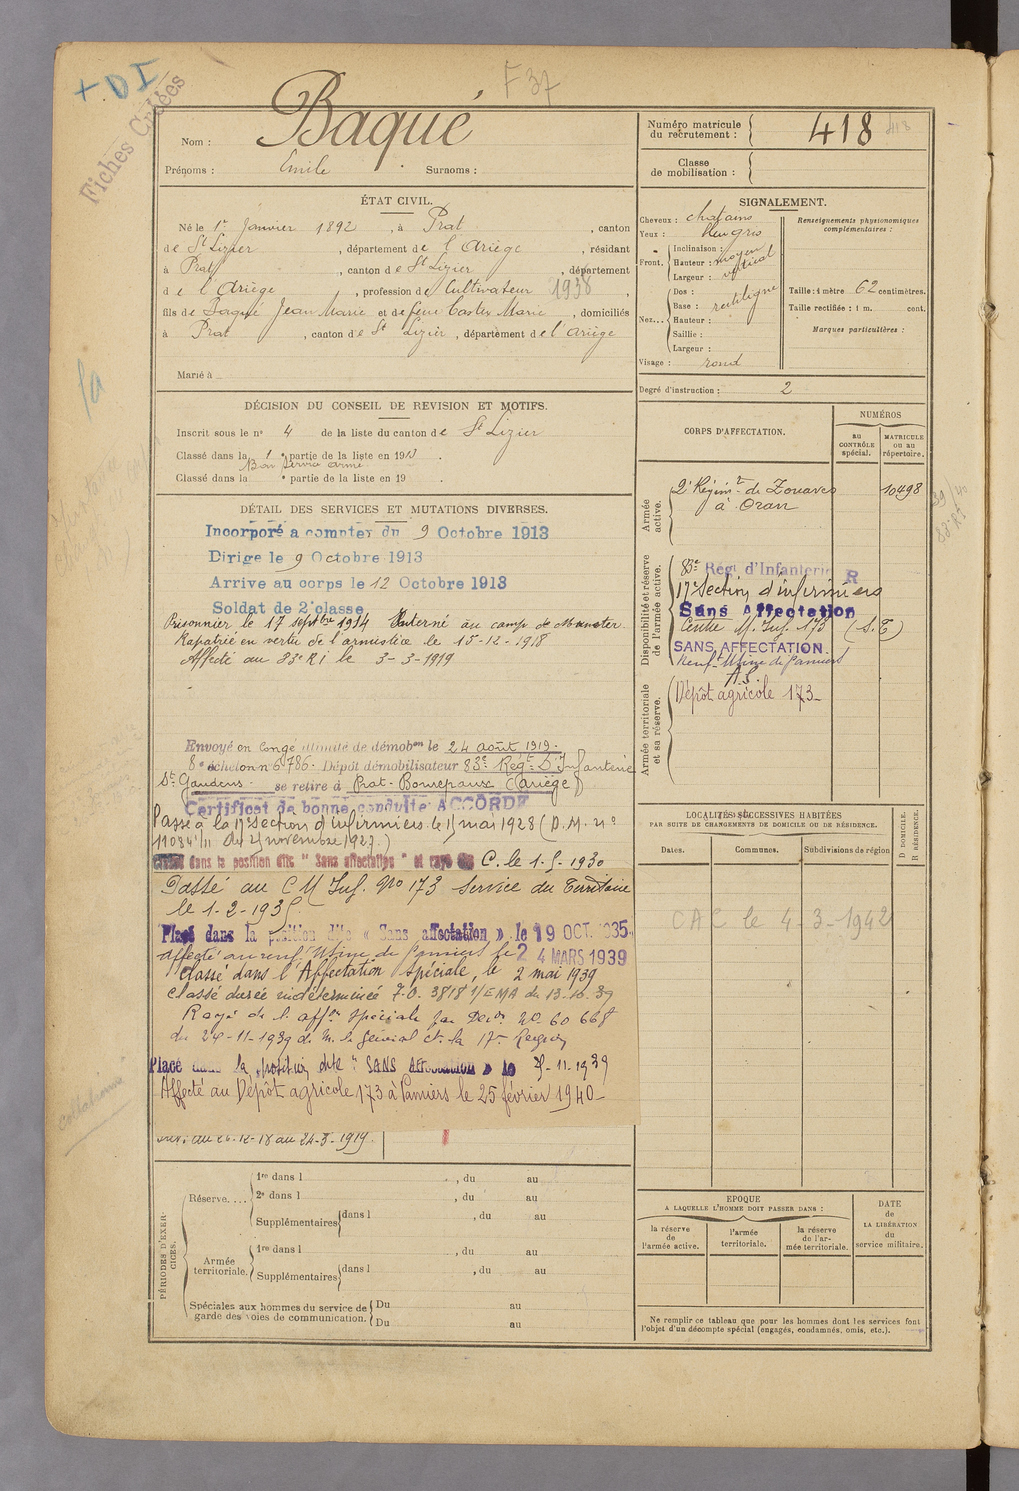 + DI
Fiches Créées
F 37
Nom : Baqué
Prénoms : Emile Surnoms :
Numéro matricule du recrutement : 418
418
Classe de mobilisation :
ÉTAT CIVIL.
Né le 1er Janvier 1892, à Prat, canton
de St Lizier, département de l'Ariège, résidant
à Prat, canton de St Lizier, département
de l'Ariège, profession de Cultivateur 1938,
fils de Baqué Jean Marie et de feue Castex Marie, domiciliés
à Prat, canton de St Lizier, département de l'Ariège
Marié à
SIGNALEMENT.
Cheveux : chatains
Yeux : bleu gris
Front. Inclinaison : moyen
Hauteur : vertical
Largeur :
Nez... Dos : rectiligne
Base :
Hauteur :
Saillie :
Largeur :
Visage : rond
Renseignements physionomiques complémentaires :
Taille : 1 mètre 62 centimètres.
Taille rectifiée : 1 m. cent.
Marques particulières :
Degré d'instruction : 2
DÉCISION DU CONSEIL DE REVISION ET MOTIFS.
Inscrit sous le n° 4 de la liste du canton de St Lizier
Classé dans la 1e partie de la liste en 1913
Bon Service armé
Classé dans la e partie de la liste en 19 .
DÉTAIL DES SERVICES ET MUTATIONS DIVERSES.
Incorporé a compter du 9 Octobre 1913
Dirige le 9 Octobre 1913
Arrive au corps le 12 Octobre 1913
Soldat de 2e classe
Prisonnier le 17 septbre 1914 Interné au camp de Munster.
Rapatrié en vertu de l'armistice le 15-12-1918
Affecté au 83e RI le 3-3-1919
Envoyé en congé illimité de démobon le 24 août 1919.
8e échelon n° 6786. Dépôt démobilisateur 83e Régt D'Infanterie
St Gaudens se retire à Prat-Bonrepaux (Ariège)
Certificat de bonne conduite ACCORDÉ
Passé à la 17e section d'infirmiers le 1 mai 1928 (D.M. n°
11084 1/11 du 25 novembre 1927)
Classé dans la position dite "Sans affectation" et rayé des C. le 1-5-1930
Passé au C M Inf. No 173 Service du Territoire
le 1-2-1935.
Placé dans la position dite « Sans affectation » le 19 OCT. 1935
affecté au renf. Usine de Pamiers le 24 MARS 1939
Classé dans l'Affectation Spéciale, le 2 mai 1939
Classé durée indéterminée 7.0. 3818 1/EMA du 13-10-39
Rayé de l'affon spéciale par Décon No 60 668
du 24-11-1939 de M. le Général Ct la 17e Région
Placé dans la position dite "SANS Affectation" le 25-11-1939
Affecté au Dépôt agricole 173 à Pamiers le 25 février 1940-
au 24-8-1919.
CORPS D'AFFECTATION.
NUMÉROS
AU CONTRÔLE spécial.
MATRICULE OU AU répertoire.
Armée active.
2e Régimt de Zouaves 10498
à Oran
Disponibilité et réserve de l'armée active.
83e Régt d'Infanterie R
17e Section d'infirmiers
Sans Affectation
Centre M. Inf. 173 (S.T)
SANS AFFECTATION.
Renft Usine de Pamiers
A.S.
Armée territoriale et sa réserve.
Dépôt agricole 173-
LOCALITÉS SUCCESSIVES HABITÉES
PAR SUITE DE CHANGEMENTS DE DOMICILE OU DE RÉSIDENCE.
Dates. Communes. Subdivisions de région
D DOMICILE.
R RÉSIDENCE.
CAC le 4-3-1942
collationné
PÉRIODES D'EXERCICES.
Réserve.... 1re dans l , du au
2e dans l , du au
Supplémentaires dans l , du au
Armée territoriale. 1re dans l , du au
Supplémentaires dans l , du au
Spéciales aux hommes du service de garde des voies de communication. Du au
Du au
EPOQUE
A LAQUELLE L'HOMME DOIT PASSER DANS :
la réserve de l'armée active.
l'armée territoriale.
la réserve de l'armée territoriale.
DATE de LA LIBÉRATION du service militaire.
Ne remplir ce tableau que pour les hommes dont les services font
l'objet d'un décompte spécial (engagés, condamnés, omis, etc.).